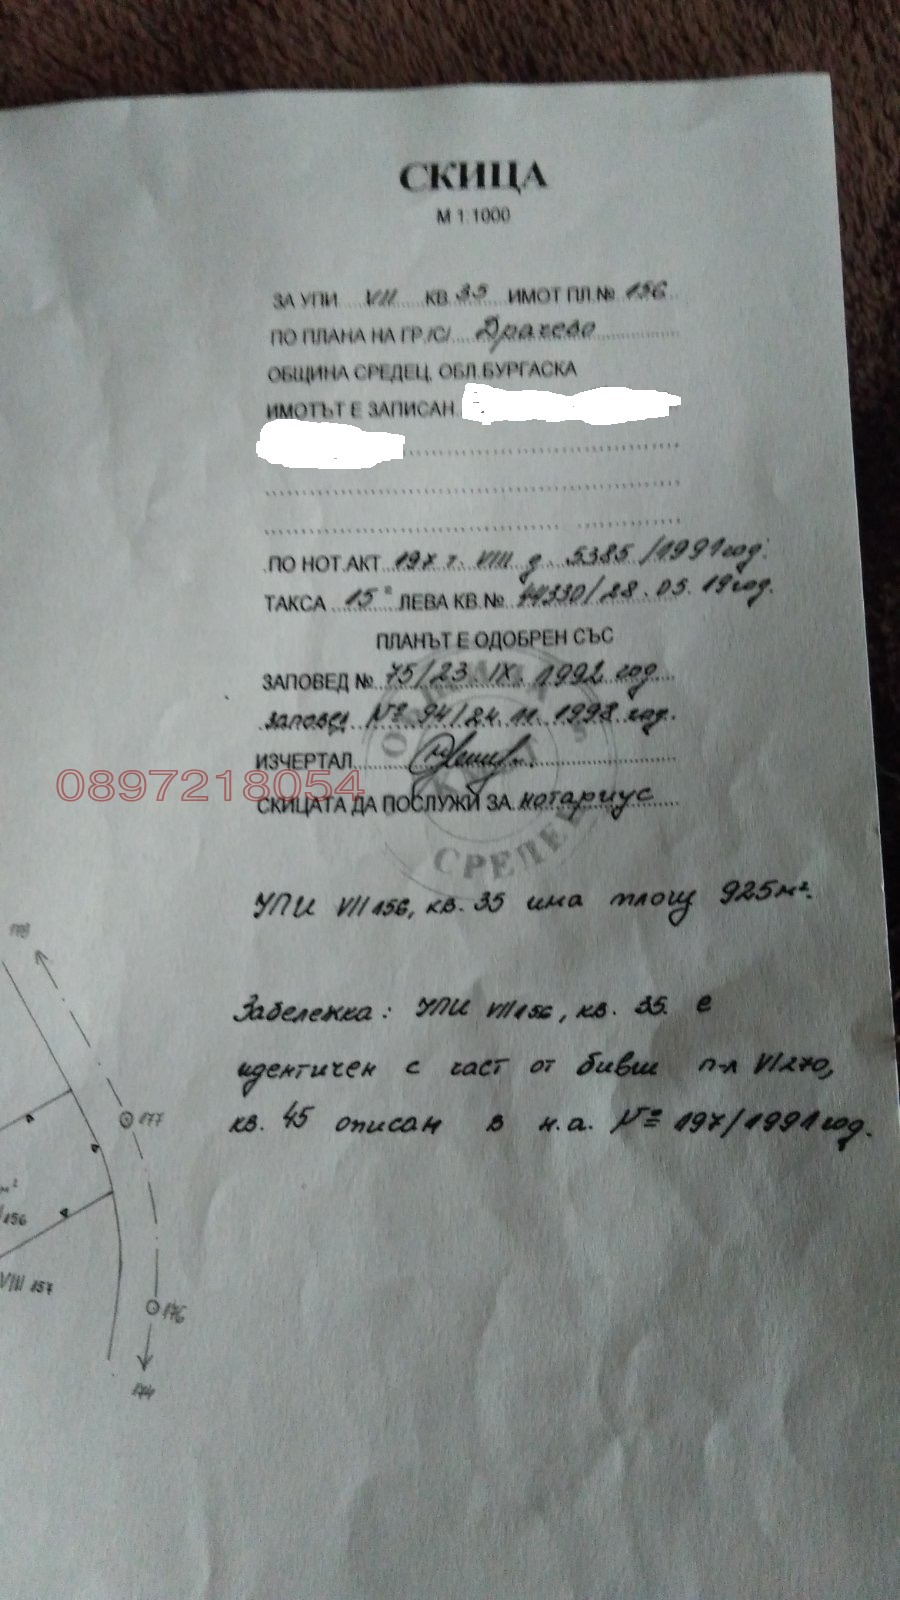 СКИЦА
М 1:1000
ЗА УПИ VII КВ. 35 ИМОТ ПЛ.№ 156
ПО ПЛАНА НА ГР./С/ Драчево
ОБЩИНА СРЕДЕЦ, ОБЛ.БУРГАСКА
ИМОТЪТ Е ЗАПИСАН
ПО НОТ.АКТ 197 т. VIII д. 5385/1991год.
ТАКСА 15 ЛЕВА КВ.№ /28.05.19год.
ПЛАНЪТ Е ОДОБРЕН СЪС
ЗАПОВЕД № 75/23.IX.1992 год
заповед № 94/24.11.1998 год.
ИЗЧЕРТАЛ
0897218054
СКИЦАТА ДА ПОСЛУЖИ ЗА нотариус
СРЕДЕЦ
УПИ VII 156, кв. 35 има площ 925м².
Забележка: УПИ VII 156, кв. 35 е
идентичен с част от бивш п-л VI 270,
кв. 45 описан в н.а. № 197/1991год.
177
м²
/156
VIII 157
176
174